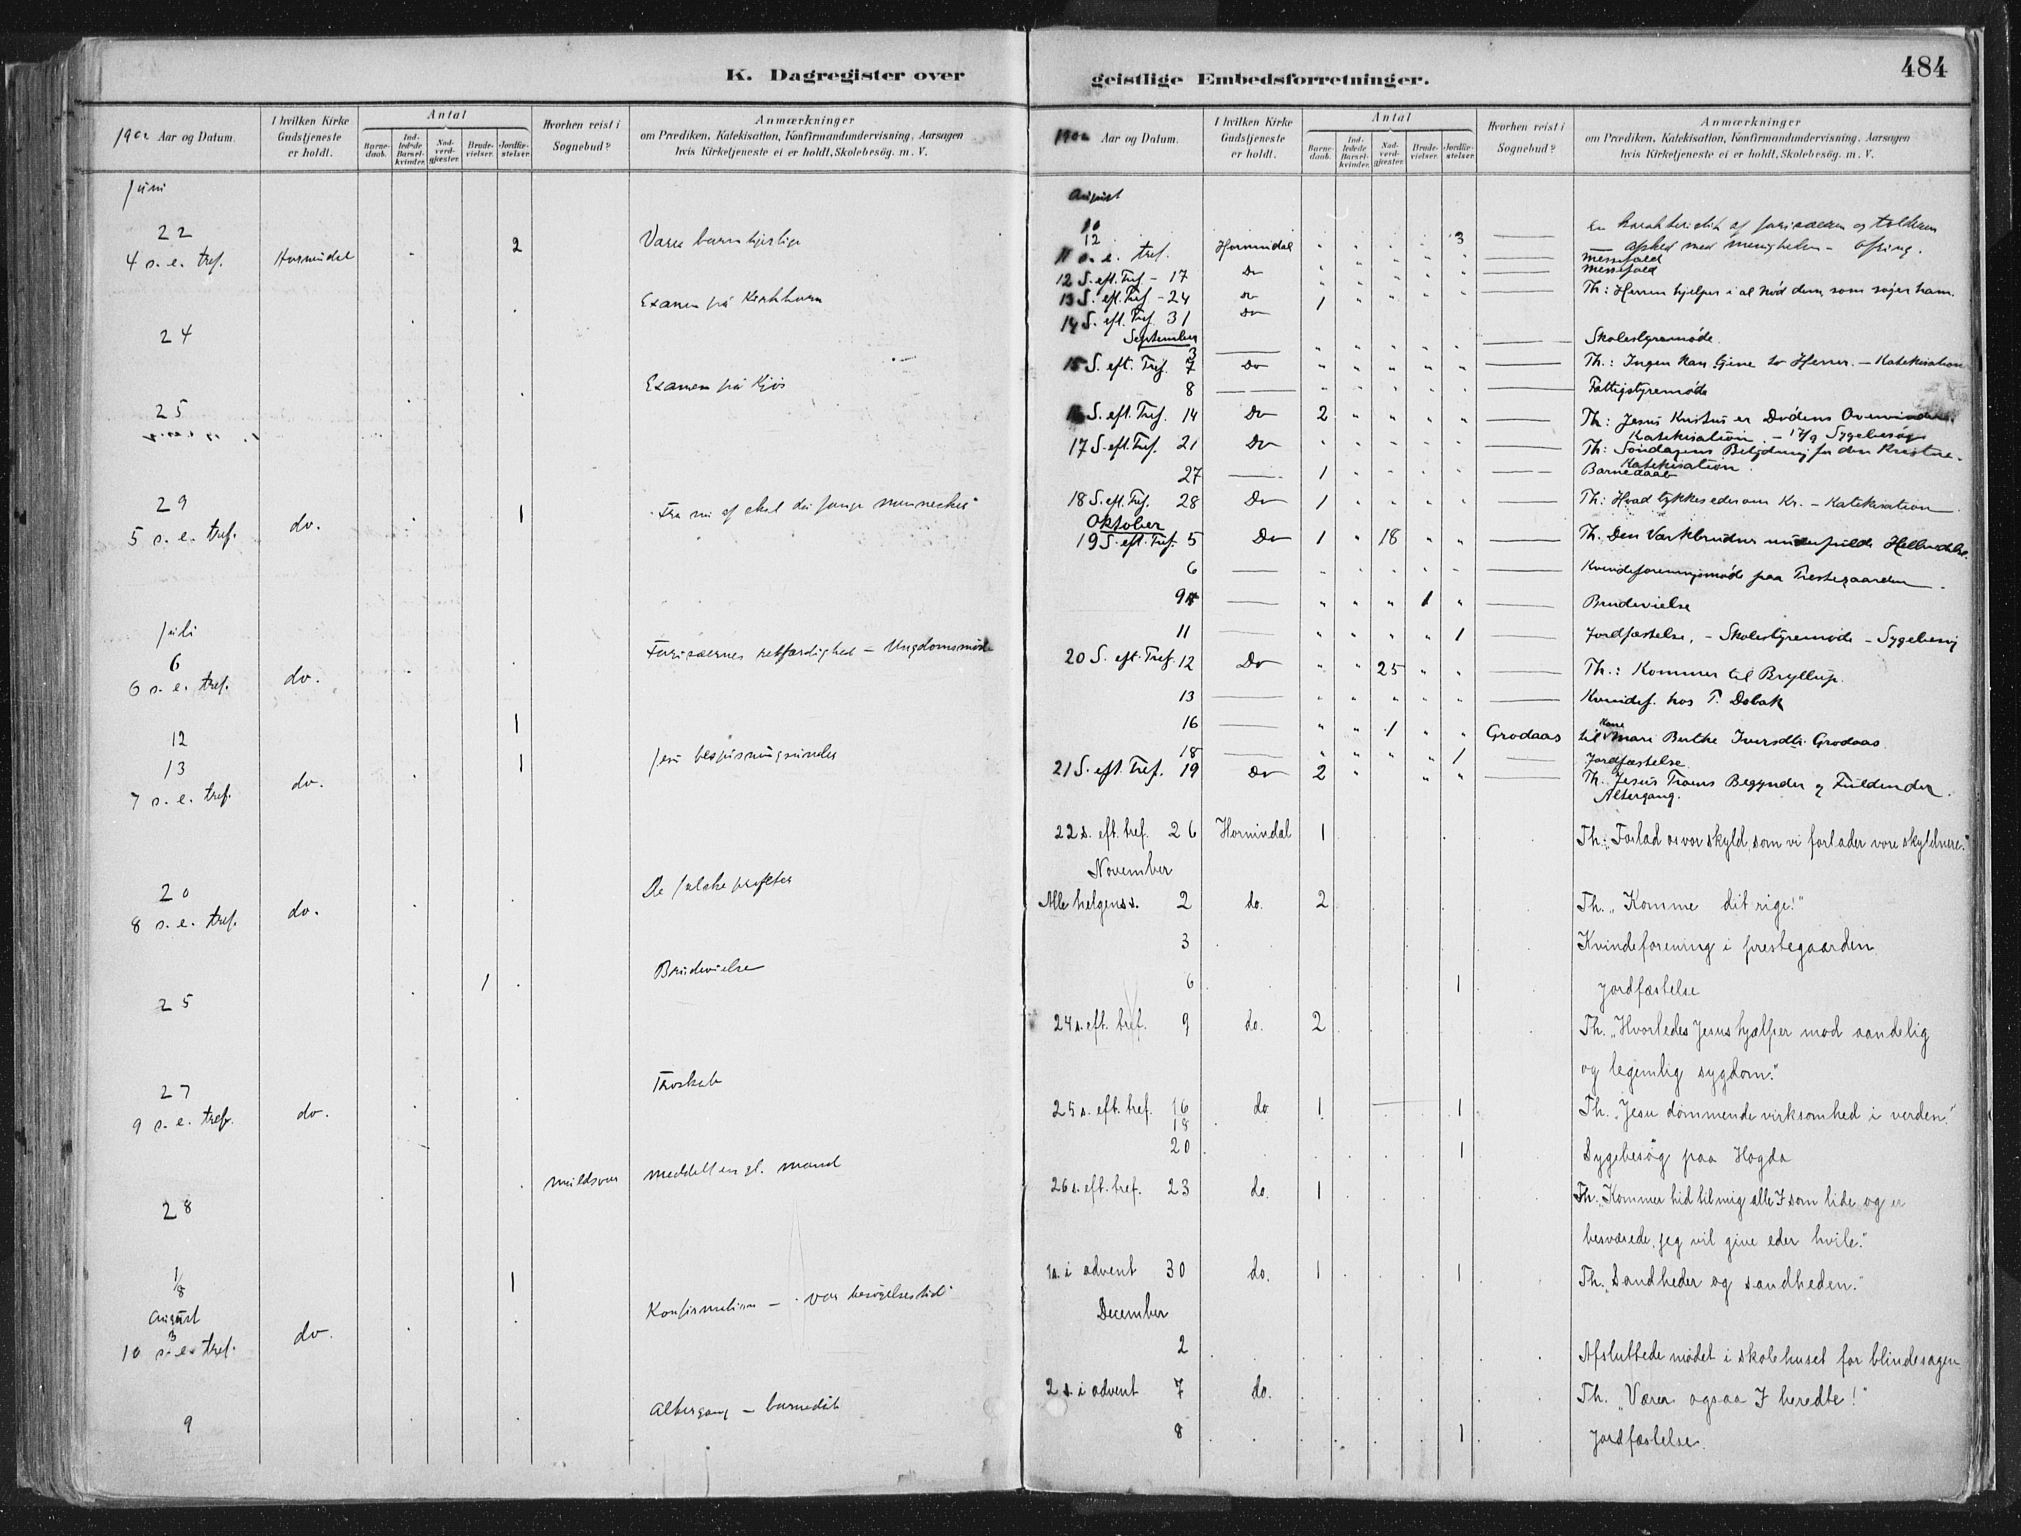 K. Dagregister over
1902 Aar og Datum.
I hvilken Kirke Gudstjeneste er holdt.
Antal
Barnedaab.
Indledede Barselkvinder.
Nadverdgjester.
Brudevielser.
Jordfæstelser.
Hvorhen reist i Sognebud?
Anmærkninger
om Prædiken, Katekisation, Konfirmandundervisning, Aarsagen
hvis Kirketjeneste ei er holdt, Skolebesög. m. V.
Juni
22
4 s. e. tref. Hornindal 2
24 Examen på
25 Examen på Kjös
29
5 s. e. tref. do. 1
Juli
6
6 s. e. tref. do. Farisæernes retfærdighed – Ungdomsmöde
12 1
13
7 s. e. tref. do. 1 Jesu bespisningsunder
20
8 s. e. tref. do. De falske profeter
25 1 Brudevielse
27
9 s. e. tref. do. Troskab
28 meddelt en gl. mand
1/8 1
August
3
10 s. e. tref. do. Konfirmation – vor besögelsestid
9 Altergang – barnedåb
geistlige Embedsforretninger.
484
1902 Aar og Datum.
I hvilken Kirke Gudstjeneste er holdt.
Antal
Barnedaab.
Indledede Barselkvinder.
Nadverdgjester.
Brudevielser.
Jordfæstelser.
Hvorhen reist i Sognebud?
Anmærkninger
om Prædiken, Katekisation, Konfirmandundervisning, Aarsagen
hvis Kirketjeneste ei er holdt, Skolebesög. m. V.
August
10
12 3 En karakteristik af farisæeren og tolderen
11 s. e. tref. Hornindal afsked med menigheden – ofring.
Messefald
12 S. eft. Tref – 17 Do Messefald
13 S. eft. Tref – 24 do 1 Th: Herren hjelper i al Nød dem, som søger ham.
14 S. eft. Tref. 31 Do
September
3 Skolestyremøde.
15 S. eft. Tref. 7 Do Th.: Ingen kan tjene to Herrer. – Katekisation
8 Fattigstyremøde
16 S. eft. Tref. 14 Do 2 Th: Jesus Kristus er Dødens Overvinder.
Katekisation. – 17/9 Sygebesøg
17 S. eft Tref. 21 Do Th: Søndagens Betydning for den Kristne.
Katekisation.
27 1 Barnedaab
18 S. eft. Tref. 28 Do 1 Th: Hvad tykkes eder om Kr. – Katekisation
Oktober
19 S. eft. Tref. 5 Do 1 18 Th. Den Værkbrudnes underfulde Helbredelse.
6 Kvindeforeningsmøde paa Prestegaarden.
9 1 Brudevielse
11 1 Jordfæstelse. – Skolestyremøde – Sygebesøg
20 S. eft. Tref. 12 Do 25 Th.: Kommer til Bryllup.
13 Kvindef. hos P. Dobak
16 1 Grodaas til Kone Mari Berthe Iversdtr. Grodaas
18 1 Jordfæstelse.
21 S. eft. Tref. 19 Do 2 Th. Jesus Troens Begynder og Fuldender.
Altergang.
22 s. eft. tref. 26 Hornindal 1 Th.: „Forlad os vor skyld, som vi forlader vore skyldnere."
November
Alle helgens s. 2 do. 2 Th. „Komme dit rige!"
3 Kvindeforening i prestegaarden
6 1 Jordfæstelse
24 s. eft. tref. 9 do. 2 Th. „Hvorledes Jesus hjælper mod aandelig
og legemlig sygdom."
25 s. eft. tref. 16 do 1 1 Th. „Jesu dömmende virksomhed i verden."
18
20 1 Sygebesög paa Hogda
26 s. eft. tref. 23 do. 1 Th. „Kommer hid til mig alle I som lide og er
besværede, jeg vil give eder hvile."
1 s. i advent 30 do. 1 1 Th. „Sandheder og sandheden."
December
2 Afsluttede mødet i skolehuset for blindesagen
2 s. i advent 7 do. Th. „Værer ogsaa I beredte!"
8 1 Jordfæstelse.